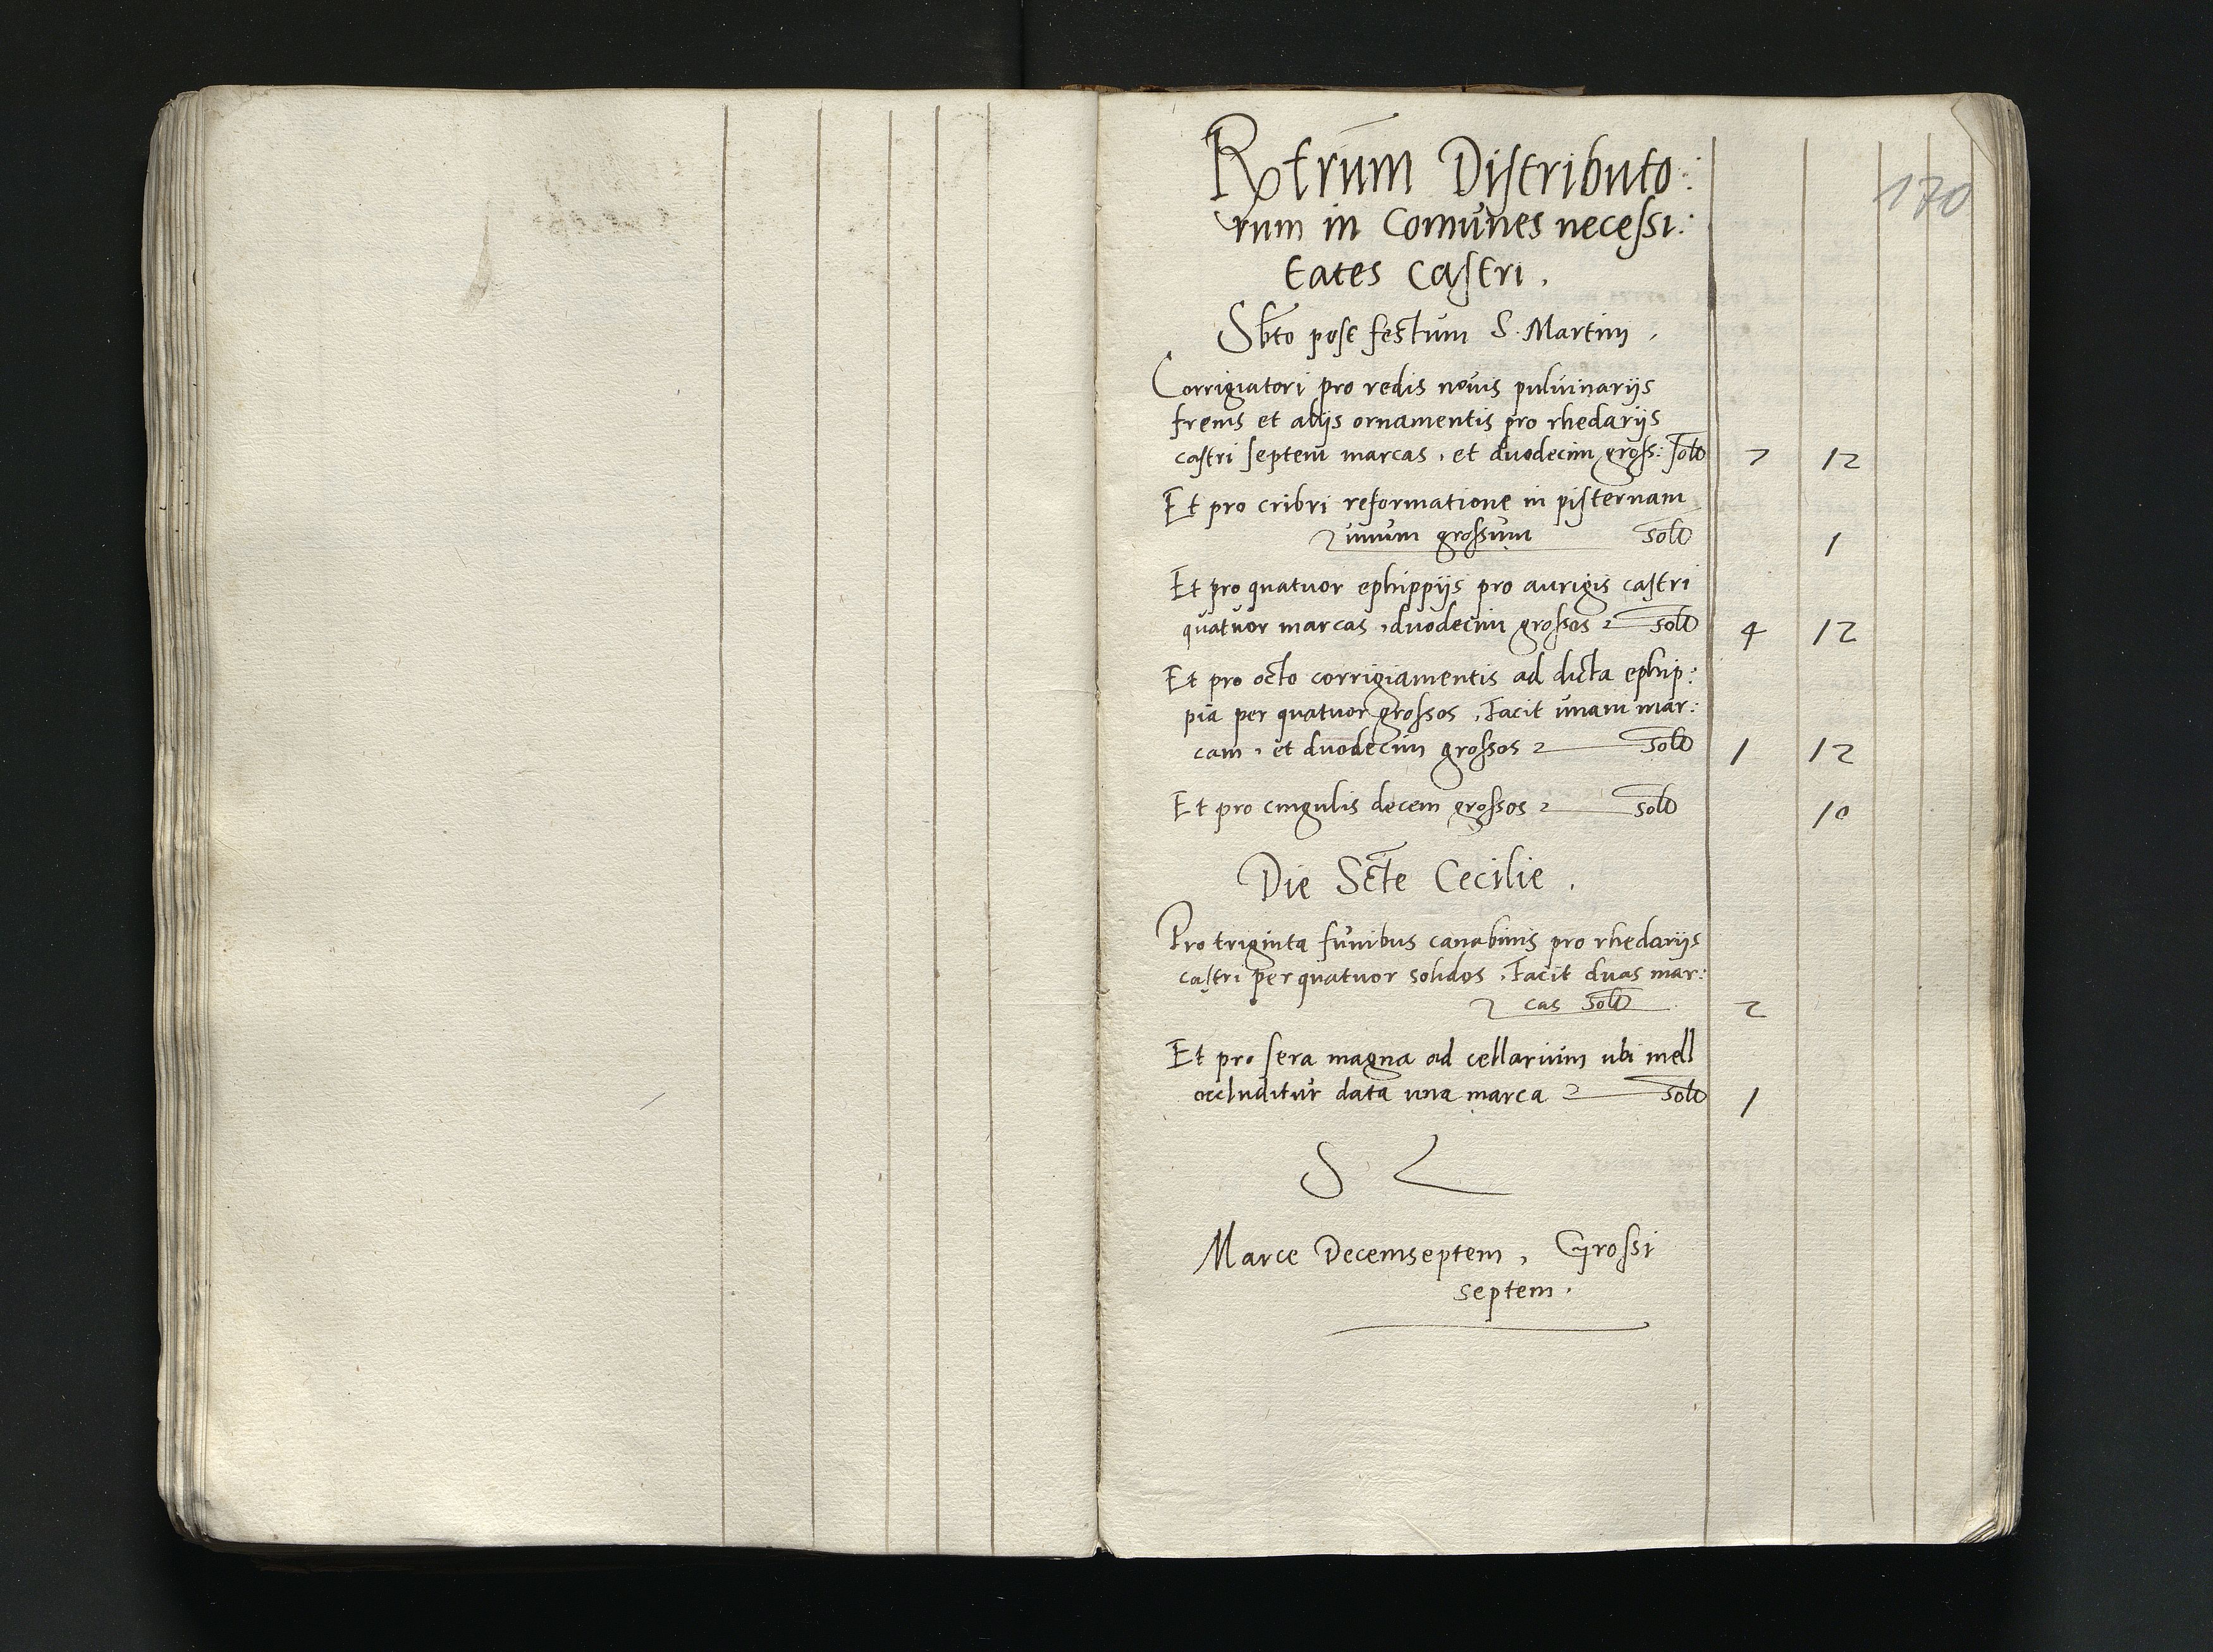 170
Rerum Distributo:
rum in Comunes necessi:
tates Castri.
Sbto post festum S. Martini.
Corrigiatori pro redis novis pulvinarijs 
frenis et alijs ornamentis pro rhedarijs
castri septem marcas, et duodecim gross: sol 7 12
Et pro cribri reformatione in pisternam
unum grossum sol 1
Et pro quatuor ephippijs pro aurigis castri
quatuor marcas, duodecim grossos sol 4 12
Et pro octo corrigiamentis ad dicta ephip:
pia per quatuor grossos, Facit unam mar:
cam, et duodecim grossos sol 1 12
Et pro cingulis decem grossos sol 10
Die Scte Cecilie.
Pro triginta funibus canabinis pro rhedarijs
castri per quatuor solidos, Facit duas mar:
cas sol 2
Et pro sera magna ad cellarium ubi mell
occluditur data una marca sol 1
S
Marce Decemseptem, Grossi
septem.